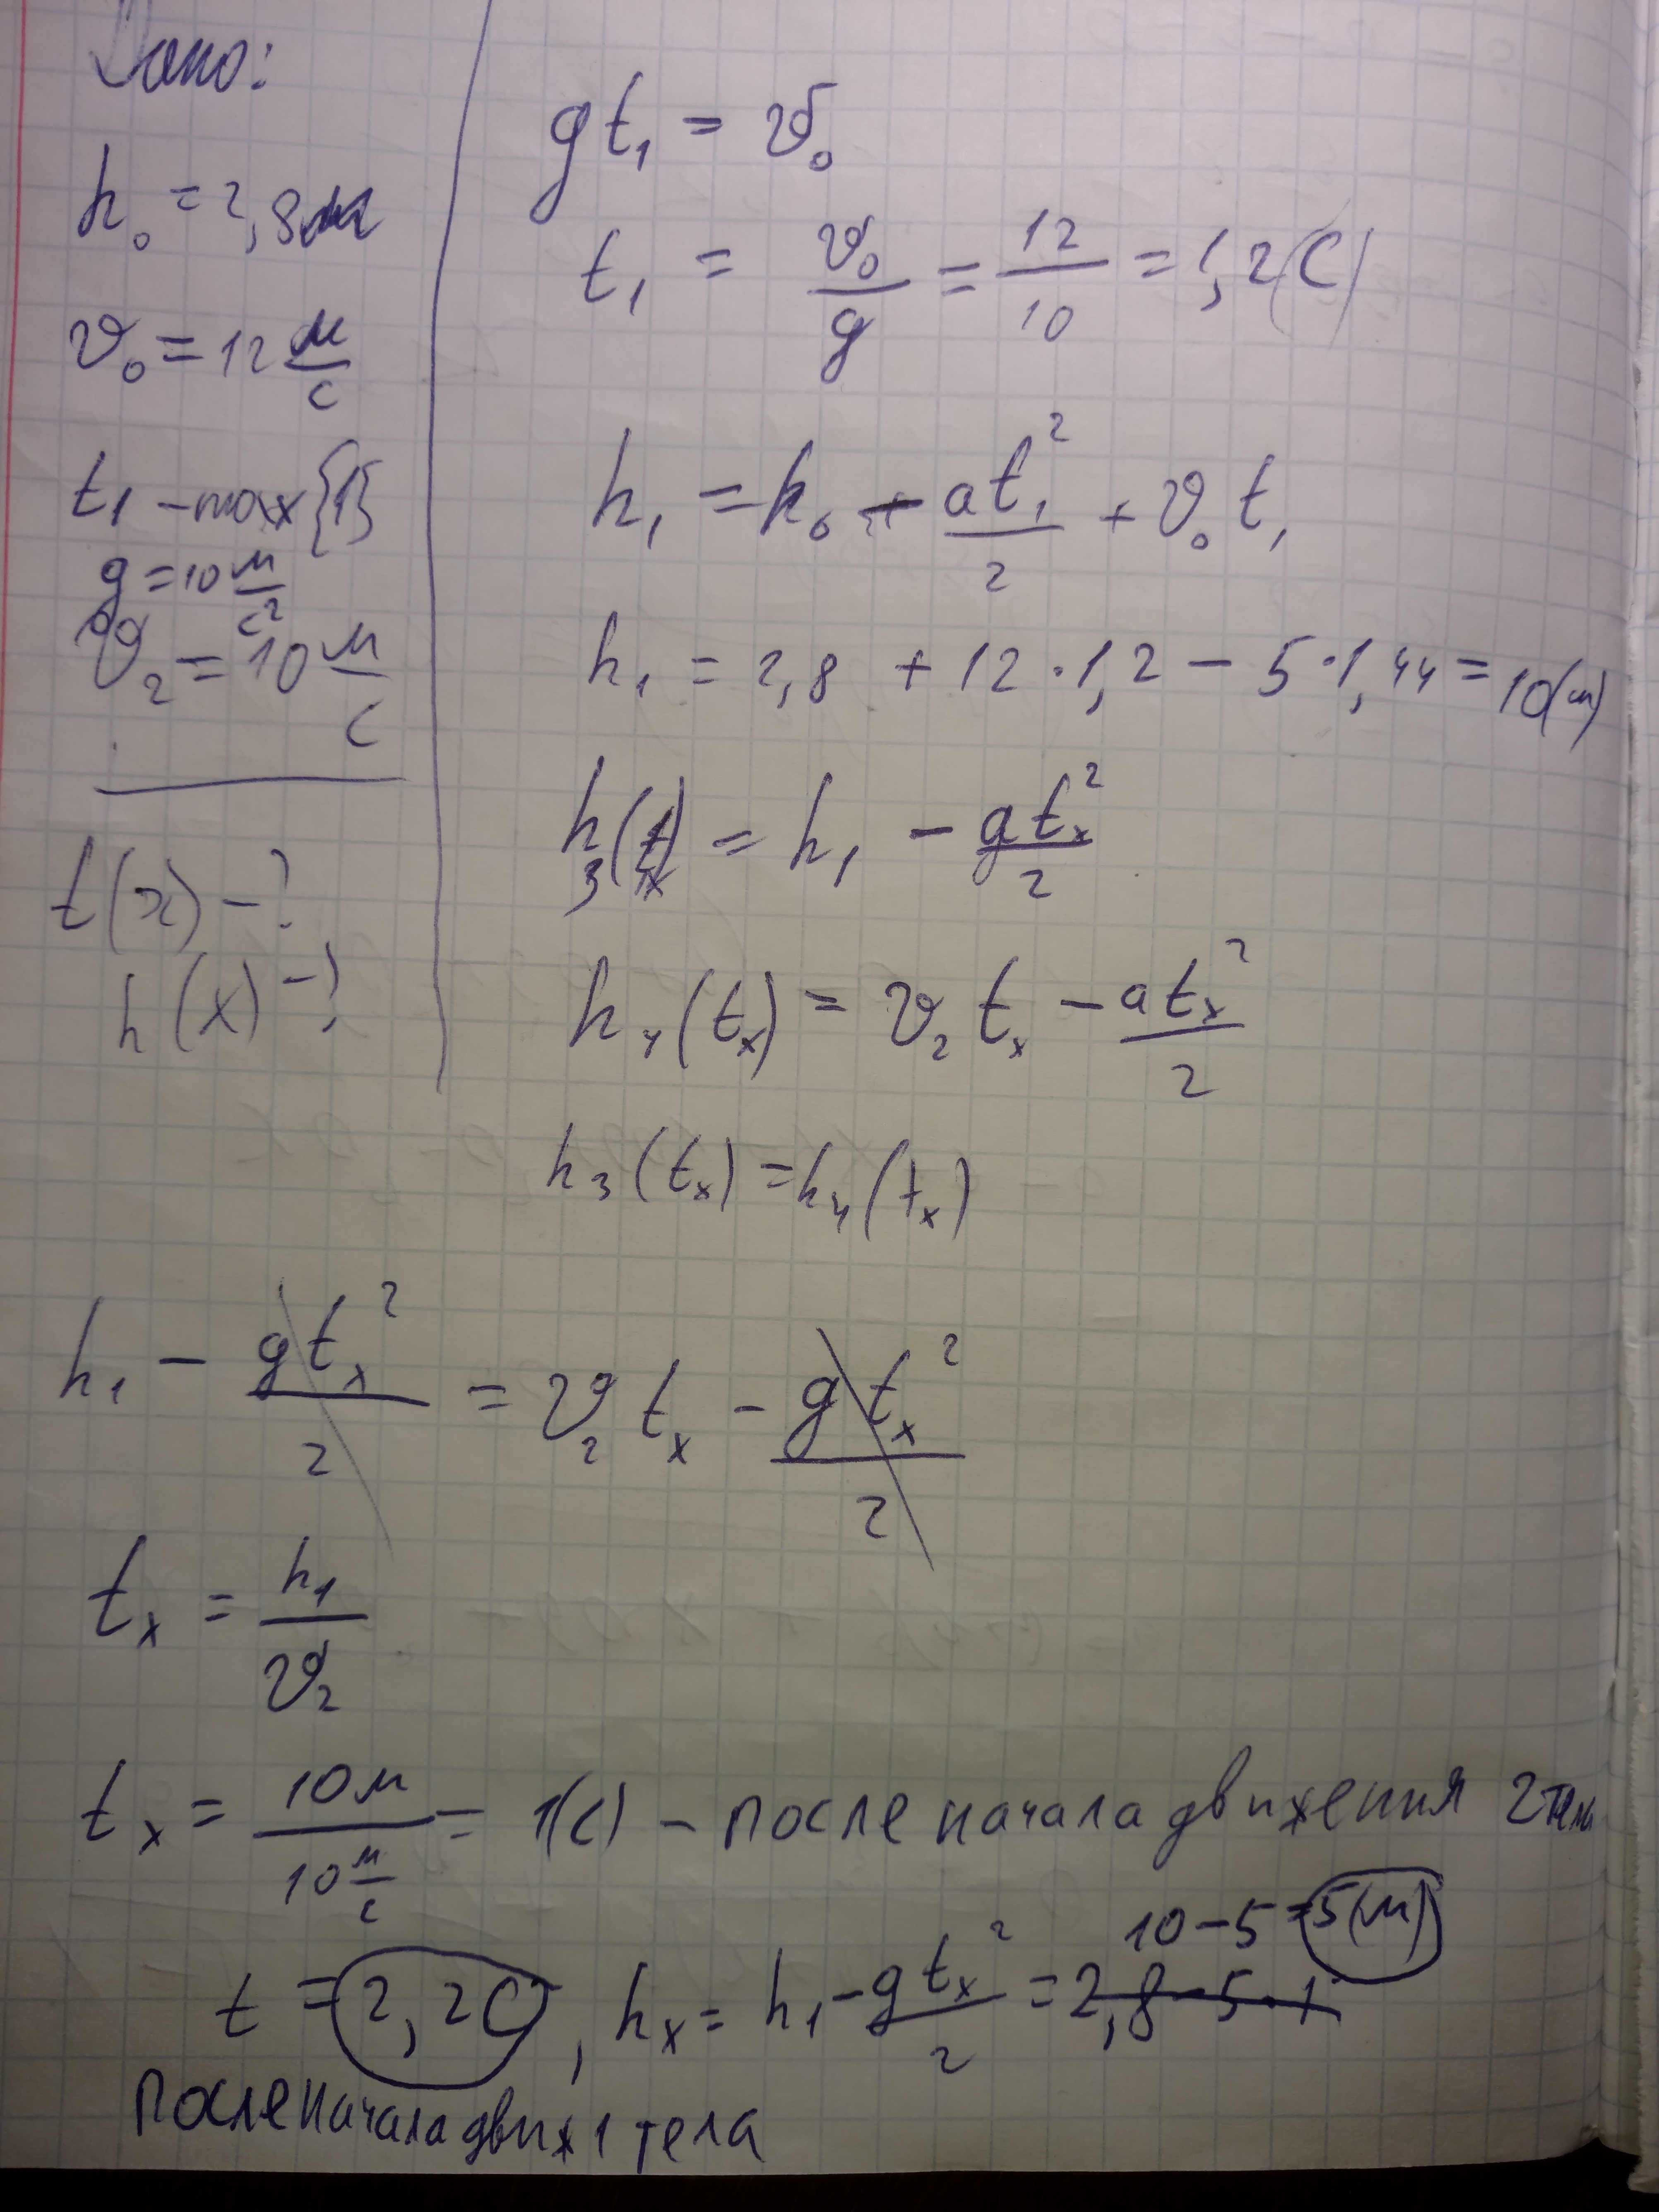 Дано:
h₀ = 2,8м
v₀ = 12 м/с
t₁ – max{1}
g = 10 м/с²
v₂ = 10 м/с
t(x) – ?
h(x) – ?
gt₁ = v₀
t₁ = v₀/g = 12/10 = 1,2(с)
h₁ = h₀ – at₁²/2 + v₀t₁
h₁ = 2,8 + 12·1,2 – 5·1,44 = 10(м)
h₃(tₓ) = h₁ – gtₓ²/2
h₄(tₓ) = v₂tₓ – atₓ²/2
h₃(tₓ) = h₄(tₓ)
h₁ – gtₓ²/2 = v₂tₓ – gtₓ²/2
tₓ = h₁/v₂
tₓ = 10м/10м/с = 1(с) – после начала движения 2 тела
10–5=5(м)
t = 2,2с, hₓ = h₁ – gtₓ²/2 = 2,8–5·1
после начала движ 1 тела